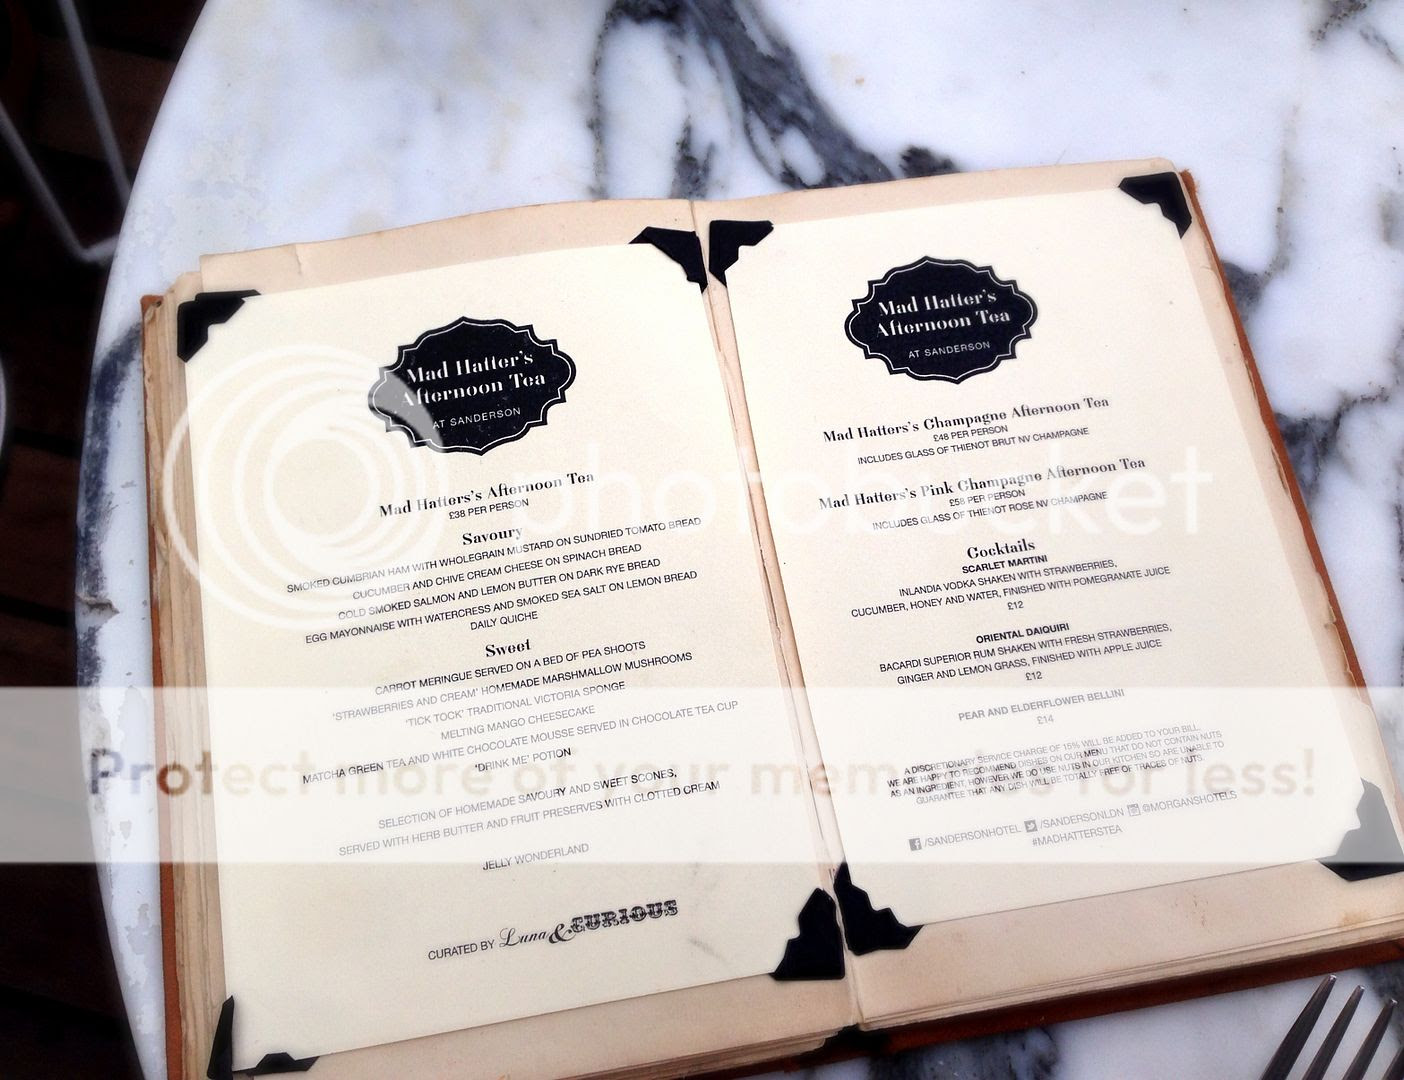 Mad Hatter's
Afternoon Tea
AT SANDERSON
Mad Hatters's Afternoon Tea
£38 PER PERSON
Savoury
SMOKED CUMBRIAN HAM WITH WHOLEGRAIN MUSTARD ON SUNDRIED TOMATO BREAD
CUCUMBER AND CHIVE CREAM CHEESE ON SPINACH BREAD
COLD SMOKED SALMON AND LEMON BUTTER ON DARK RYE BREAD
EGG MAYONNAISE WITH WATERCRESS AND SMOKED SEA SALT ON LEMON BREAD
DAILY QUICHE
Sweet
CARROT MERINGUE SERVED ON A BED OF PEA SHOOTS
'STRAWBERRIES AND CREAM' HOMEMADE MARSHMALLOW MUSHROOMS
'TICK TOCK' TRADITIONAL VICTORIA SPONGE
MELTING MANGO CHEESECAKE
MATCHA GREEN TEA AND WHITE CHOCOLATE MOUSSE SERVED IN CHOCOLATE TEA CUP
'DRINK ME' POTION
SELECTION OF HOMEMADE SAVOURY AND SWEET SCONES,
SERVED WITH HERB BUTTER AND FRUIT PRESERVES WITH CLOTTED CREAM
JELLY WONDERLAND
CURATED BY Luna & CURIOUS
Mad Hatter's
Afternoon Tea
AT SANDERSON
Mad Hatters's Champagne Afternoon Tea
£48 PER PERSON
INCLUDES GLASS OF THIENOT BRUT NV CHAMPAGNE
Mad Hatters's Pink Champagne Afternoon Tea
£58 PER PERSON
INCLUDES GLASS OF THIENOT ROSE NV CHAMPAGNE
Cocktails
SCARLET MARTINI
INLANDIA VODKA SHAKEN WITH STRAWBERRIES,
CUCUMBER, HONEY AND WATER, FINISHED WITH POMEGRANATE JUICE
£12
ORIENTAL DAIQUIRI
BACARDI SUPERIOR RUM SHAKEN WITH FRESH STRAWBERRIES,
GINGER AND LEMON GRASS, FINISHED WITH APPLE JUICE
£12
PEAR AND ELDERFLOWER BELLINI
£14
A DISCRETIONARY SERVICE CHARGE OF 15% WILL BE ADDED TO YOUR BILL.
WE ARE HAPPY TO RECOMMEND DISHES ON OUR MENU THAT DO NOT CONTAIN NUTS
AS AN INGREDIENT, HOWEVER WE DO USE NUTS IN OUR KITCHEN SO ARE UNABLE TO
GUARANTEE THAT ANY DISH WILL BE TOTALLY FREE OF TRACES OF NUTS.
/SANDERSONHOTEL /SANDERSONLDN @MORGANSHOTELS
#MADHATTERSTEA
photobucket
Protect more of your memories for less!